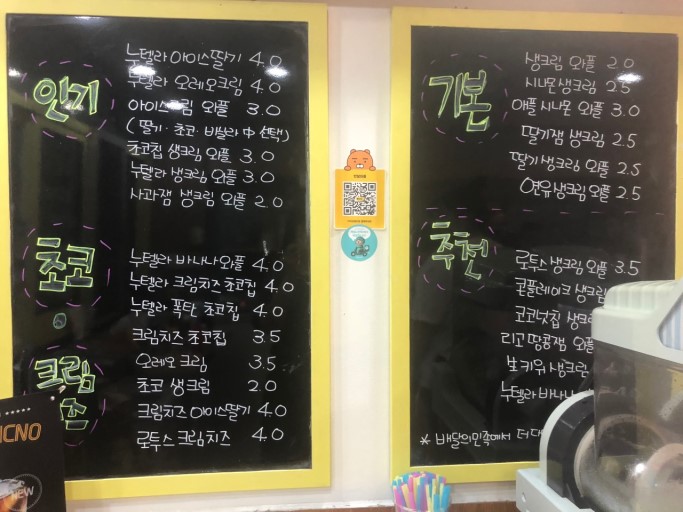 인기
누텔라 아이스딸기 4.0
누텔라 오레오크림 4.0
아이스크림 와플 3.0
(딸기·초코·바닐라 中 선택)
초코칩 생크림 와플 3.0
누텔라 생크림 와플 3.0
사과잼 생크림 와플 2.0
초코
누텔라 바나나와플 4.0
누텔라 크림치즈 초코칩 4.0
누텔라 폭탄 초코칩 4.0
크림치즈 초코칩 3.5
크림
오레오 크림 3.5
초코 생크림 2.0
크림치즈 아이스딸기 4.0
로투스 크림치즈 4.0
기본
생크림 와플 2.0
시나몬생크림 2.5
애플 시나몬 와플 3.0
딸기잼 생크림 2.5
딸기생크림 와플 2.5
연유생크림 와플 2.5
추천
로투스 생크림 와플 3.5
콘플레이크 생크림
코코넛칩 생크
리고 땅콩잼 와플
생키위 생크림
누텔라 바나나
* 배달의민족에서 더